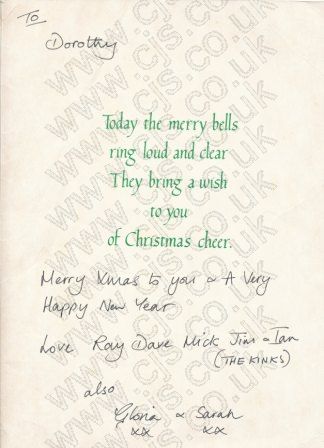 To
Dorothy
Today the merry bells
ring loud and clear
They bring a wish
to you
of Christmas cheer.
Merry Xmas to you & A Very
Happy New Year
Love Ray Dave Mick Jim & Ian
(THE KINKS)
also
Gloria & Sarah
xx xx
www.cjs.co.uk